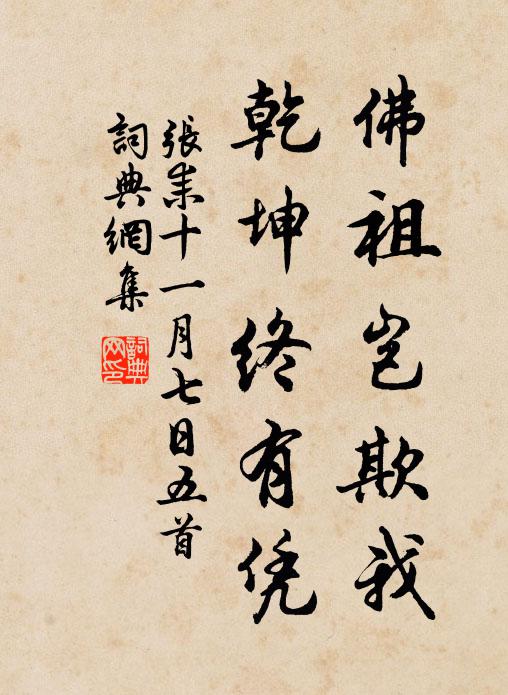 佛祖岂欺我
乾坤终有凭
張耒十一月七日五首
詞典網集
詞典网印